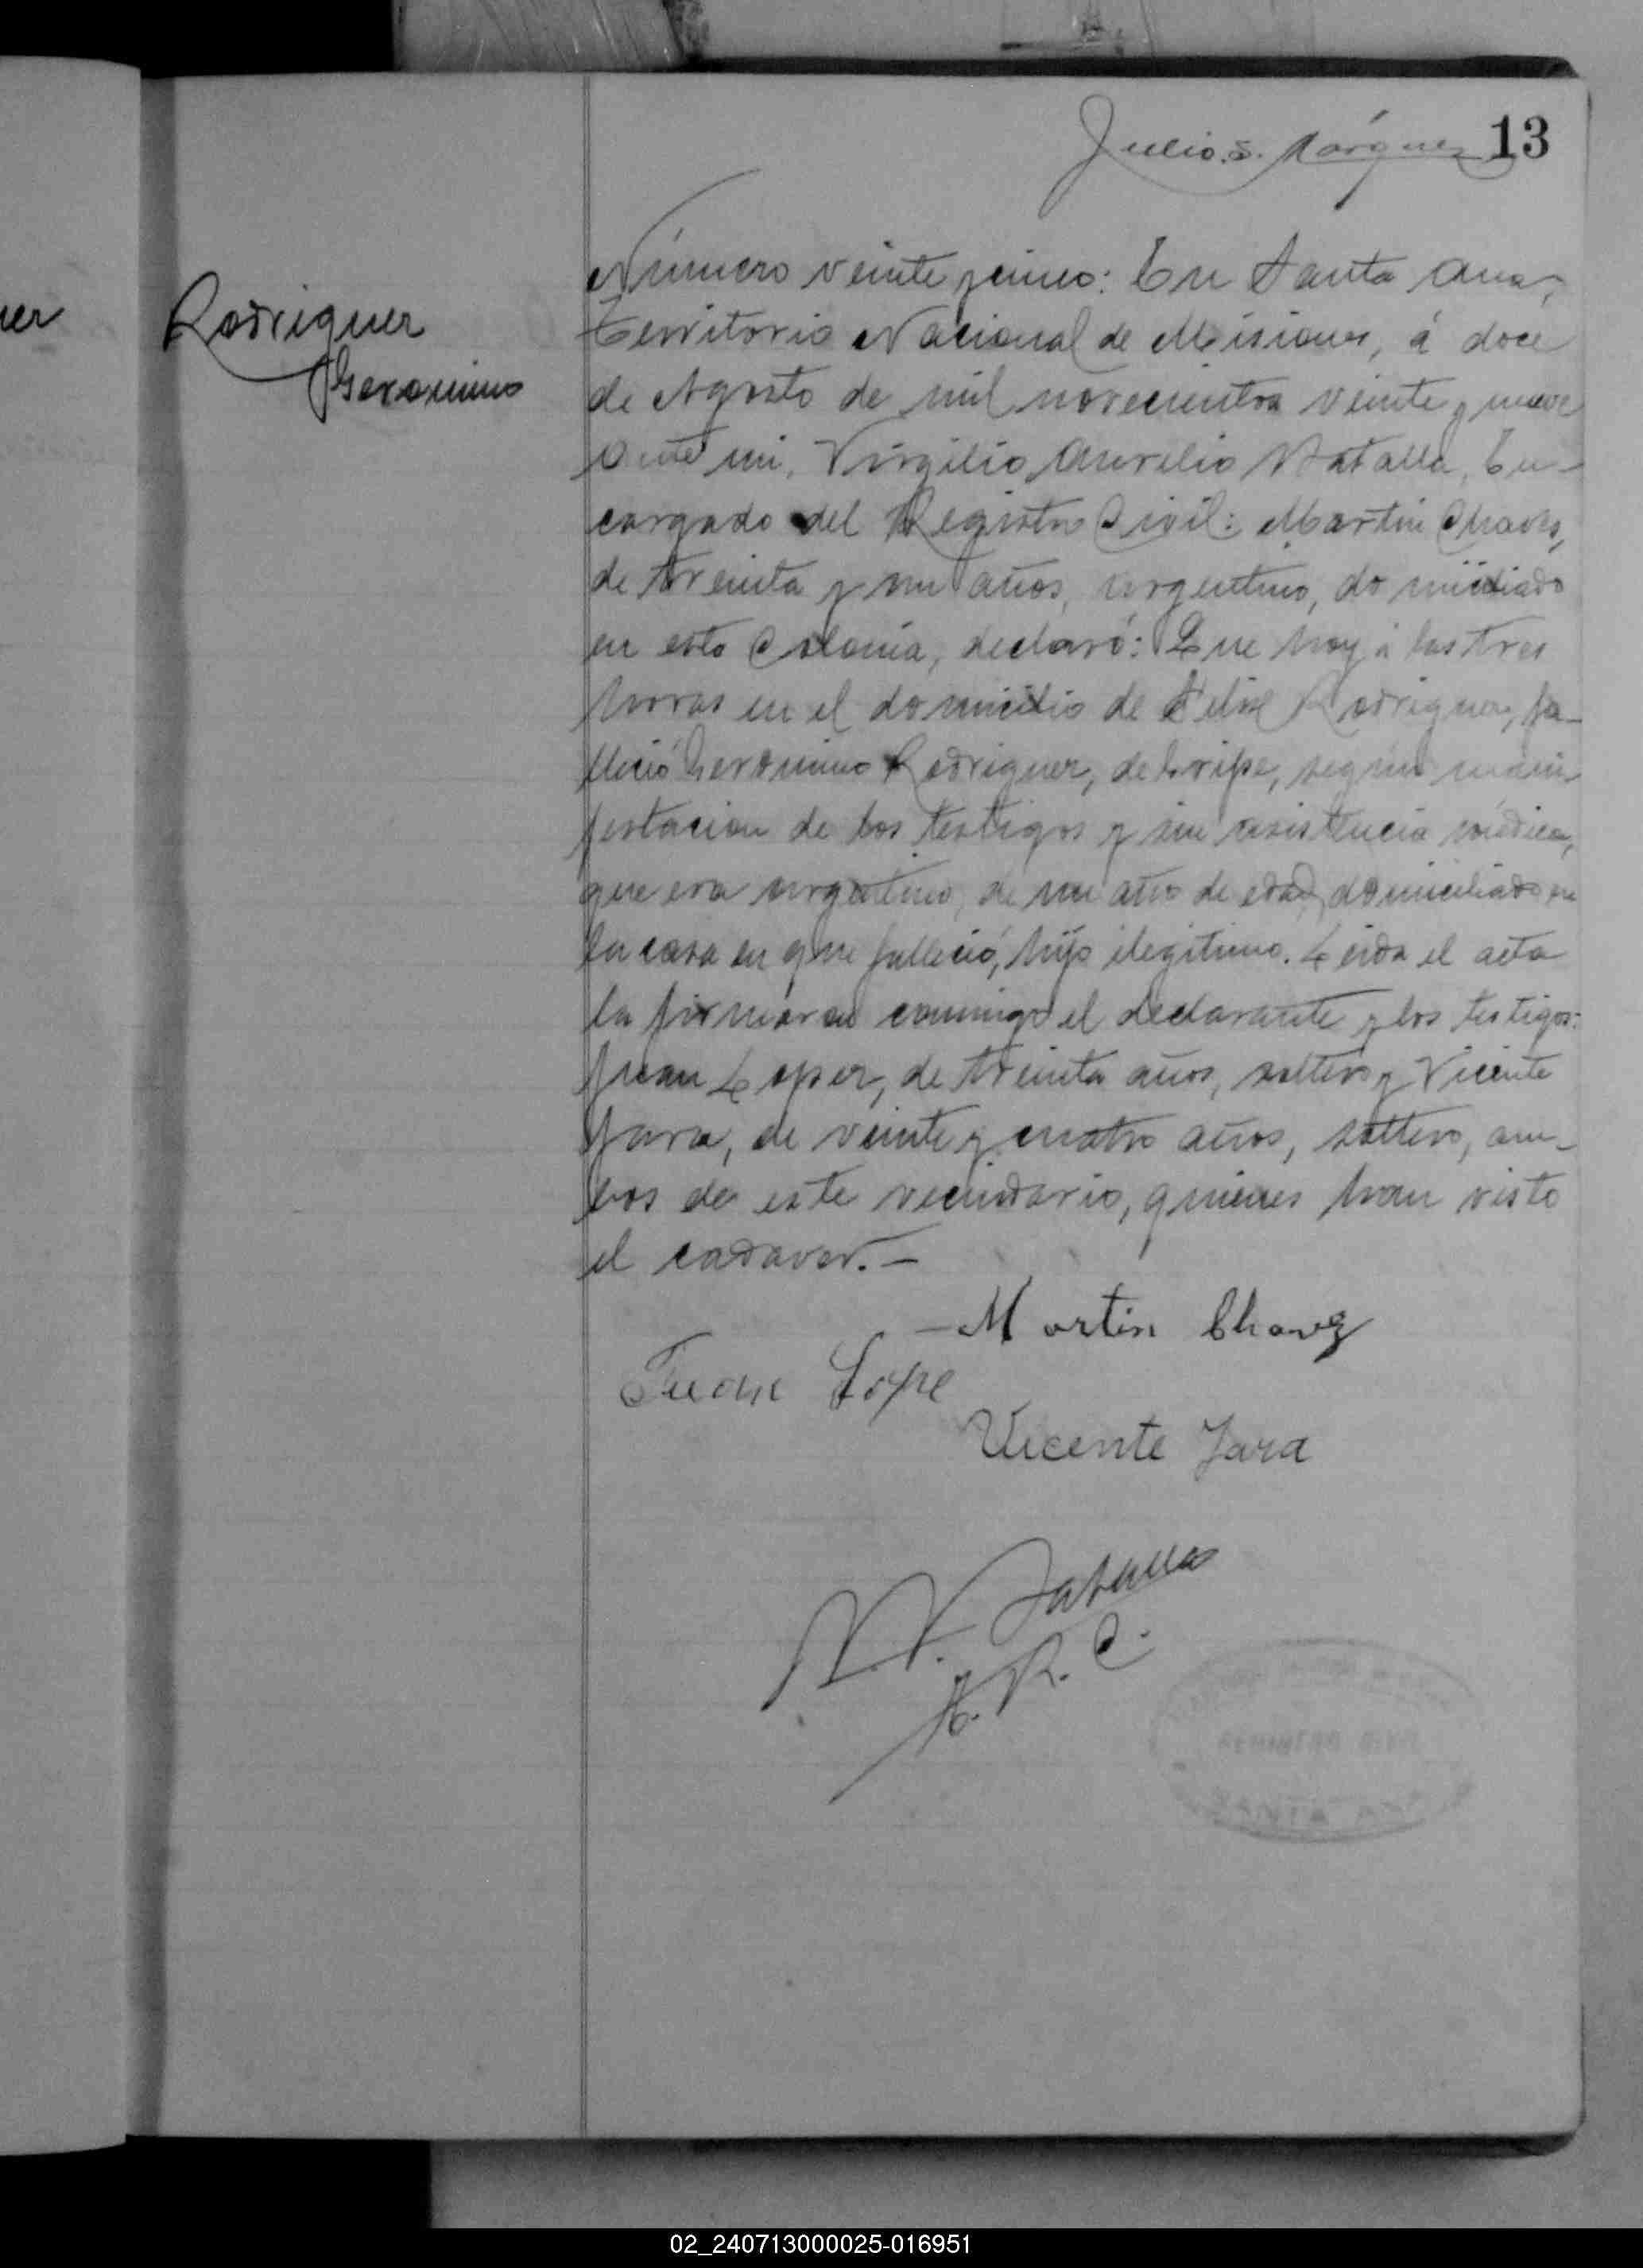 Julio. S. Márquez 13
uer
Rodriguez
Geronimo
Número veinte y cinco: En Santa Ana,
Territorio Nacional de Misiones, á doce
de Agosto de mil novecientos veinte y nueve
Ante mi, Virgilio Aurelio Batalla, En-
cargado del Registro Civil: Martin Chaves,
de treinta y un años, argentino, domiciliado
en esta Colonia, declaró: Que hoy á las tres
horas en el domicilio de Rodriguez, fa-
lleció Geronimo Rodriguez, de Gripe, según mani-
festacion de los testigos y sin asistencia médica,
que era argentino, de un año de edad, domiciliado en
la casa en que falleció, hijo ilegitimo. Leida el acta
la firmáron conmigo el declarante y los testigos:
Juan Lopez, de treinta años, soltero y Vicente
Jara, de veinte y cuatro años, soltero, am-
bos de este vecindario, quienes han visto
el cadaver.—
Martin Chavez
Juan Lope
Vicente Jara
V. A. Batalla
E. R. C.
REGISTRO CIVIL
SANTA ANA
02_240713000025-016951